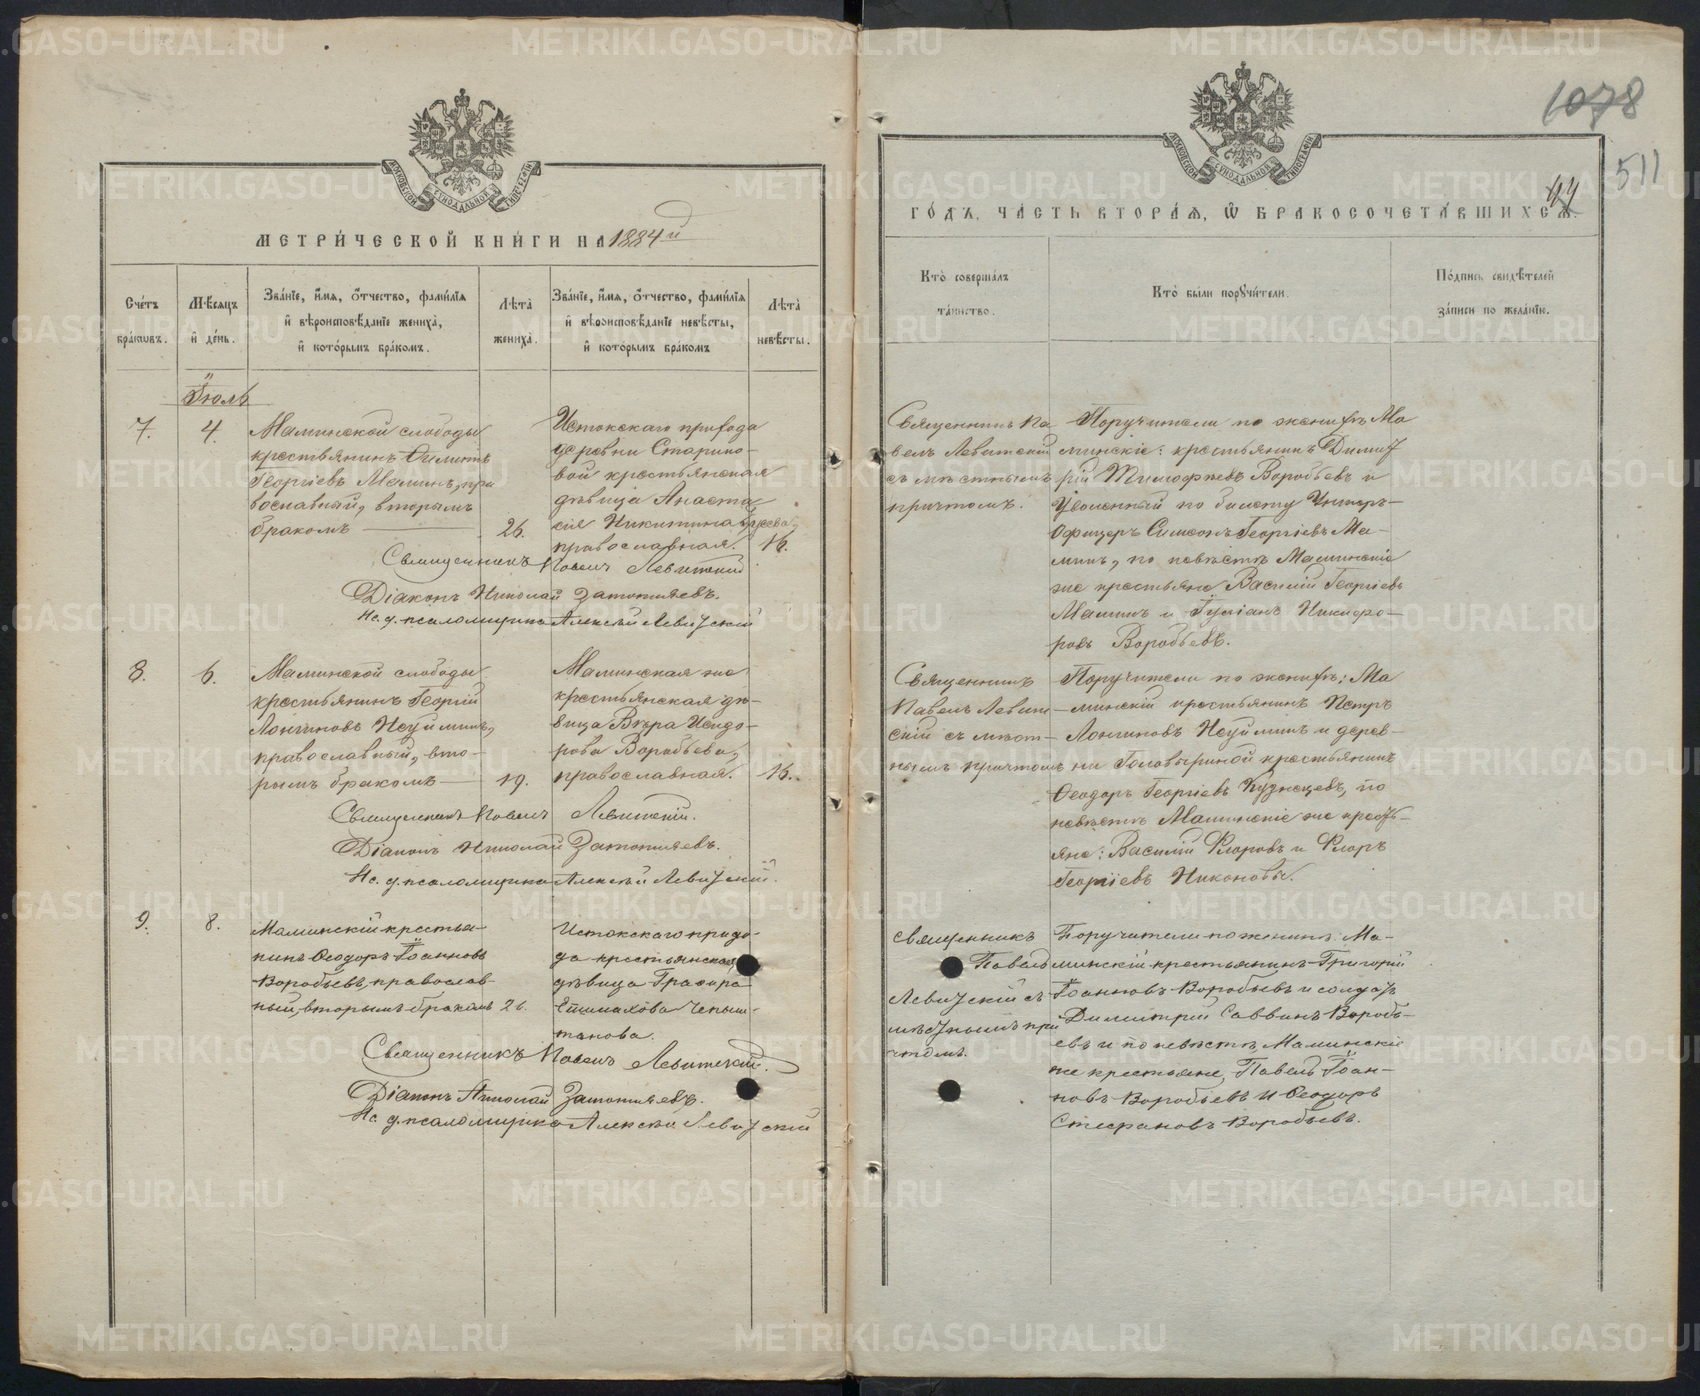 МЕТРИ́ЧЕСКОЙ КНИ́ГИ НА 1884й
Сче́тъ бра́ковъ.
Мѣ́сяцъ и҆ де́нь.
Зва́нїе, и҆́мѧ, ѻ҆́тчество, фами́лїѧ и҆ вѣроисповѣ́данїе жениха̀, и҆ кото́рымъ бра́комъ.
Лѣ́та жениха̀.
Зва́нїе, и҆́мѧ, ѻ҆́тчество, фами́лїѧ и҆ вѣроисповѣ́данїе невѣ́сты, и҆ кото́рымъ бра́комъ
Лѣ́та невѣ́сты.
Іюль
7.
4.
Маминской слободы
крестьянинъ
Георгіевъ Маминъ, пра
вославный, вторымъ
бракомъ
26.
Истокскаго прихода
деревни Старико-
вой крестьянская
дѣвица Анаста
сія Никитина
православная.
16.
Священникъ Павелъ Левитскій
Діаконъ Николай Затопляевъ.
Ис. д. псаломщика Алексѣй Левитскій
8.
6.
Маминской слободы
крестьянинъ Георгій
Лонгиновъ Неуйминъ,
православный, вто-
рымъ бракомъ
19.
Маминская же
крестьянская дѣ-
вица Вѣра Исидо-
рова Воробьева,
православная.
16.
Священникъ Павелъ Левитскій.
Діаконъ Николай Затопляевъ.
Ис. д. псаломщика Алексѣй Левитскій.
9.
8.
Маминскій крестья-
нинъ Ѳеодоръ Іоанновъ
Воробьевъ, православ-
ный, вторымъ бракомъ
26.
Истокскаго прихо-
да крестьянская
дѣвица
Священникъ Павелъ Левитскій.
Діаконъ Николай Затопляевъ.
Ис. д. псаломщика Алексѣй Левитскій
1078
511
44
ГО́ДЪ, ЧА́СТЬ ВТОРА́Ѧ, Ѡ҆ БРАКОСОЧЕТА́ВШИХСѦ.
Кто̀ соверша́лъ та́инство.
Кто̀ бы́ли порꙋчи́тели.
По́дпись свидѣ́телей за́писи по жела́нїю.
Священникъ Па
велъ Левитскій
съ мѣстнымъ
причтомъ.
Поручители по женихѣ Ма
минскіе: крестьянинъ Димит
рій Тимофѣевъ Воробьевъ и
уволенный по билету Унтеръ-
Офицеръ Симеонъ Георгіевъ Ма-
минъ, по невѣстѣ Маминскіе
же крестьяне Василій Георгіевъ
Маминъ и Іуліанъ Никифо-
ровъ Воробьевъ.
Священникъ
Павелъ Левит-
скій съ мѣст-
нымъ причтомъ
Поручители по женихѣ: Ма
минскій крестьянинъ Петръ
Лонгиновъ Неуйминъ и дерев-
ни Головыриной крестьянинъ
Ѳеодоръ Георгіевъ Кузнецевъ, по
невѣстѣ Маминскіе же кресть-
яне: Василій Флоровъ и Флоръ
Георгіевъ Никоновы.
Священникъ
Павелъ
Левитскій съ
мѣстнымъ при
чтомъ.
Поручители по женихѣ Ма-
минскій крестьянинъ Григорій
Іоанновъ Воробьевъ и солдатъ
Димитрій Саввинъ Воробь-
евъ и по невѣстѣ, Маминскіе
же крестьяне, Павелъ Іоан-
новъ Воробьевъ и Ѳеодоръ
Стефановъ Воробьевъ.
METRIKI.GASO-URAL.RU